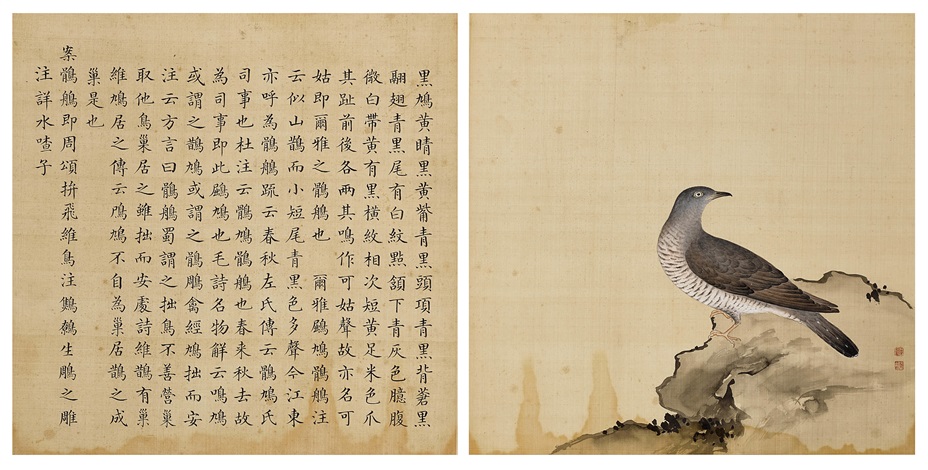 黑鳩黃睛黑黃觜青黑頭項青黑背蒼黑
翮翅青黑尾有白紋點頷下青灰色臆腹
微白帶黃有黑橫紋相次短黃足米色爪
其趾前後各兩其鳴作可姑聲故亦名可
姑即爾雅之鶻鵃也　爾雅鶌鳩鶻鵃注
云似山鵲而小短尾青黑色多聲今江東
亦呼為鶻鵃疏云春秋左氏傳云鶻鳩氏
司事也杜注云鶻鳩鶻鵃也春来秋去故
為司事即此鶌鳩也毛詩名物解云鳴鳩
或謂之鵲鳩或謂之鶻鵰禽經鳩拙而安
注云方言曰鶻鵃蜀謂之拙鳥不善營巢
取他鳥巢居之雖拙而安處詩維鵲有巢
維鳩居之傳云鳲鳩不自為巢居鵲之成
巢是也
案鶻鵃即周頌拚飛維鳥注鷦鷯生鵰之雕
注詳水喳子